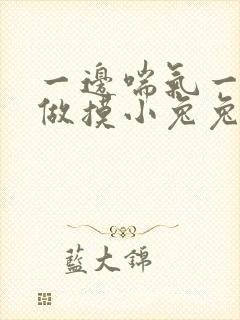 一邊喘氣一
做摸小兔兔
藍大錦